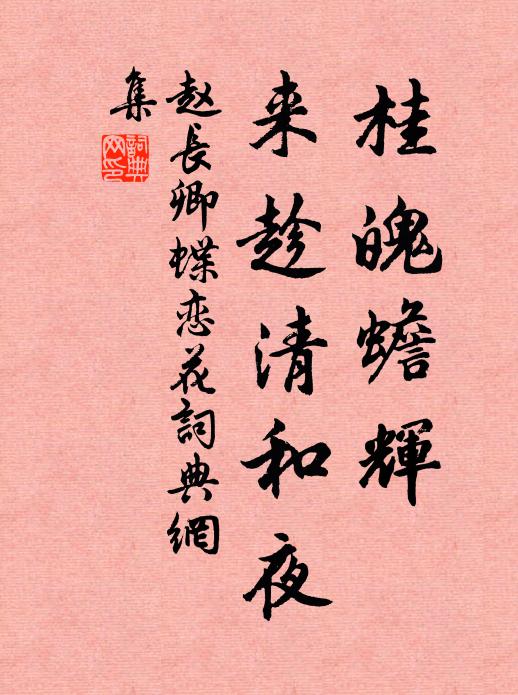 桂魄蟾輝
来趁清和夜
赵長卿蝶恋花詞典網
集
詞典网印